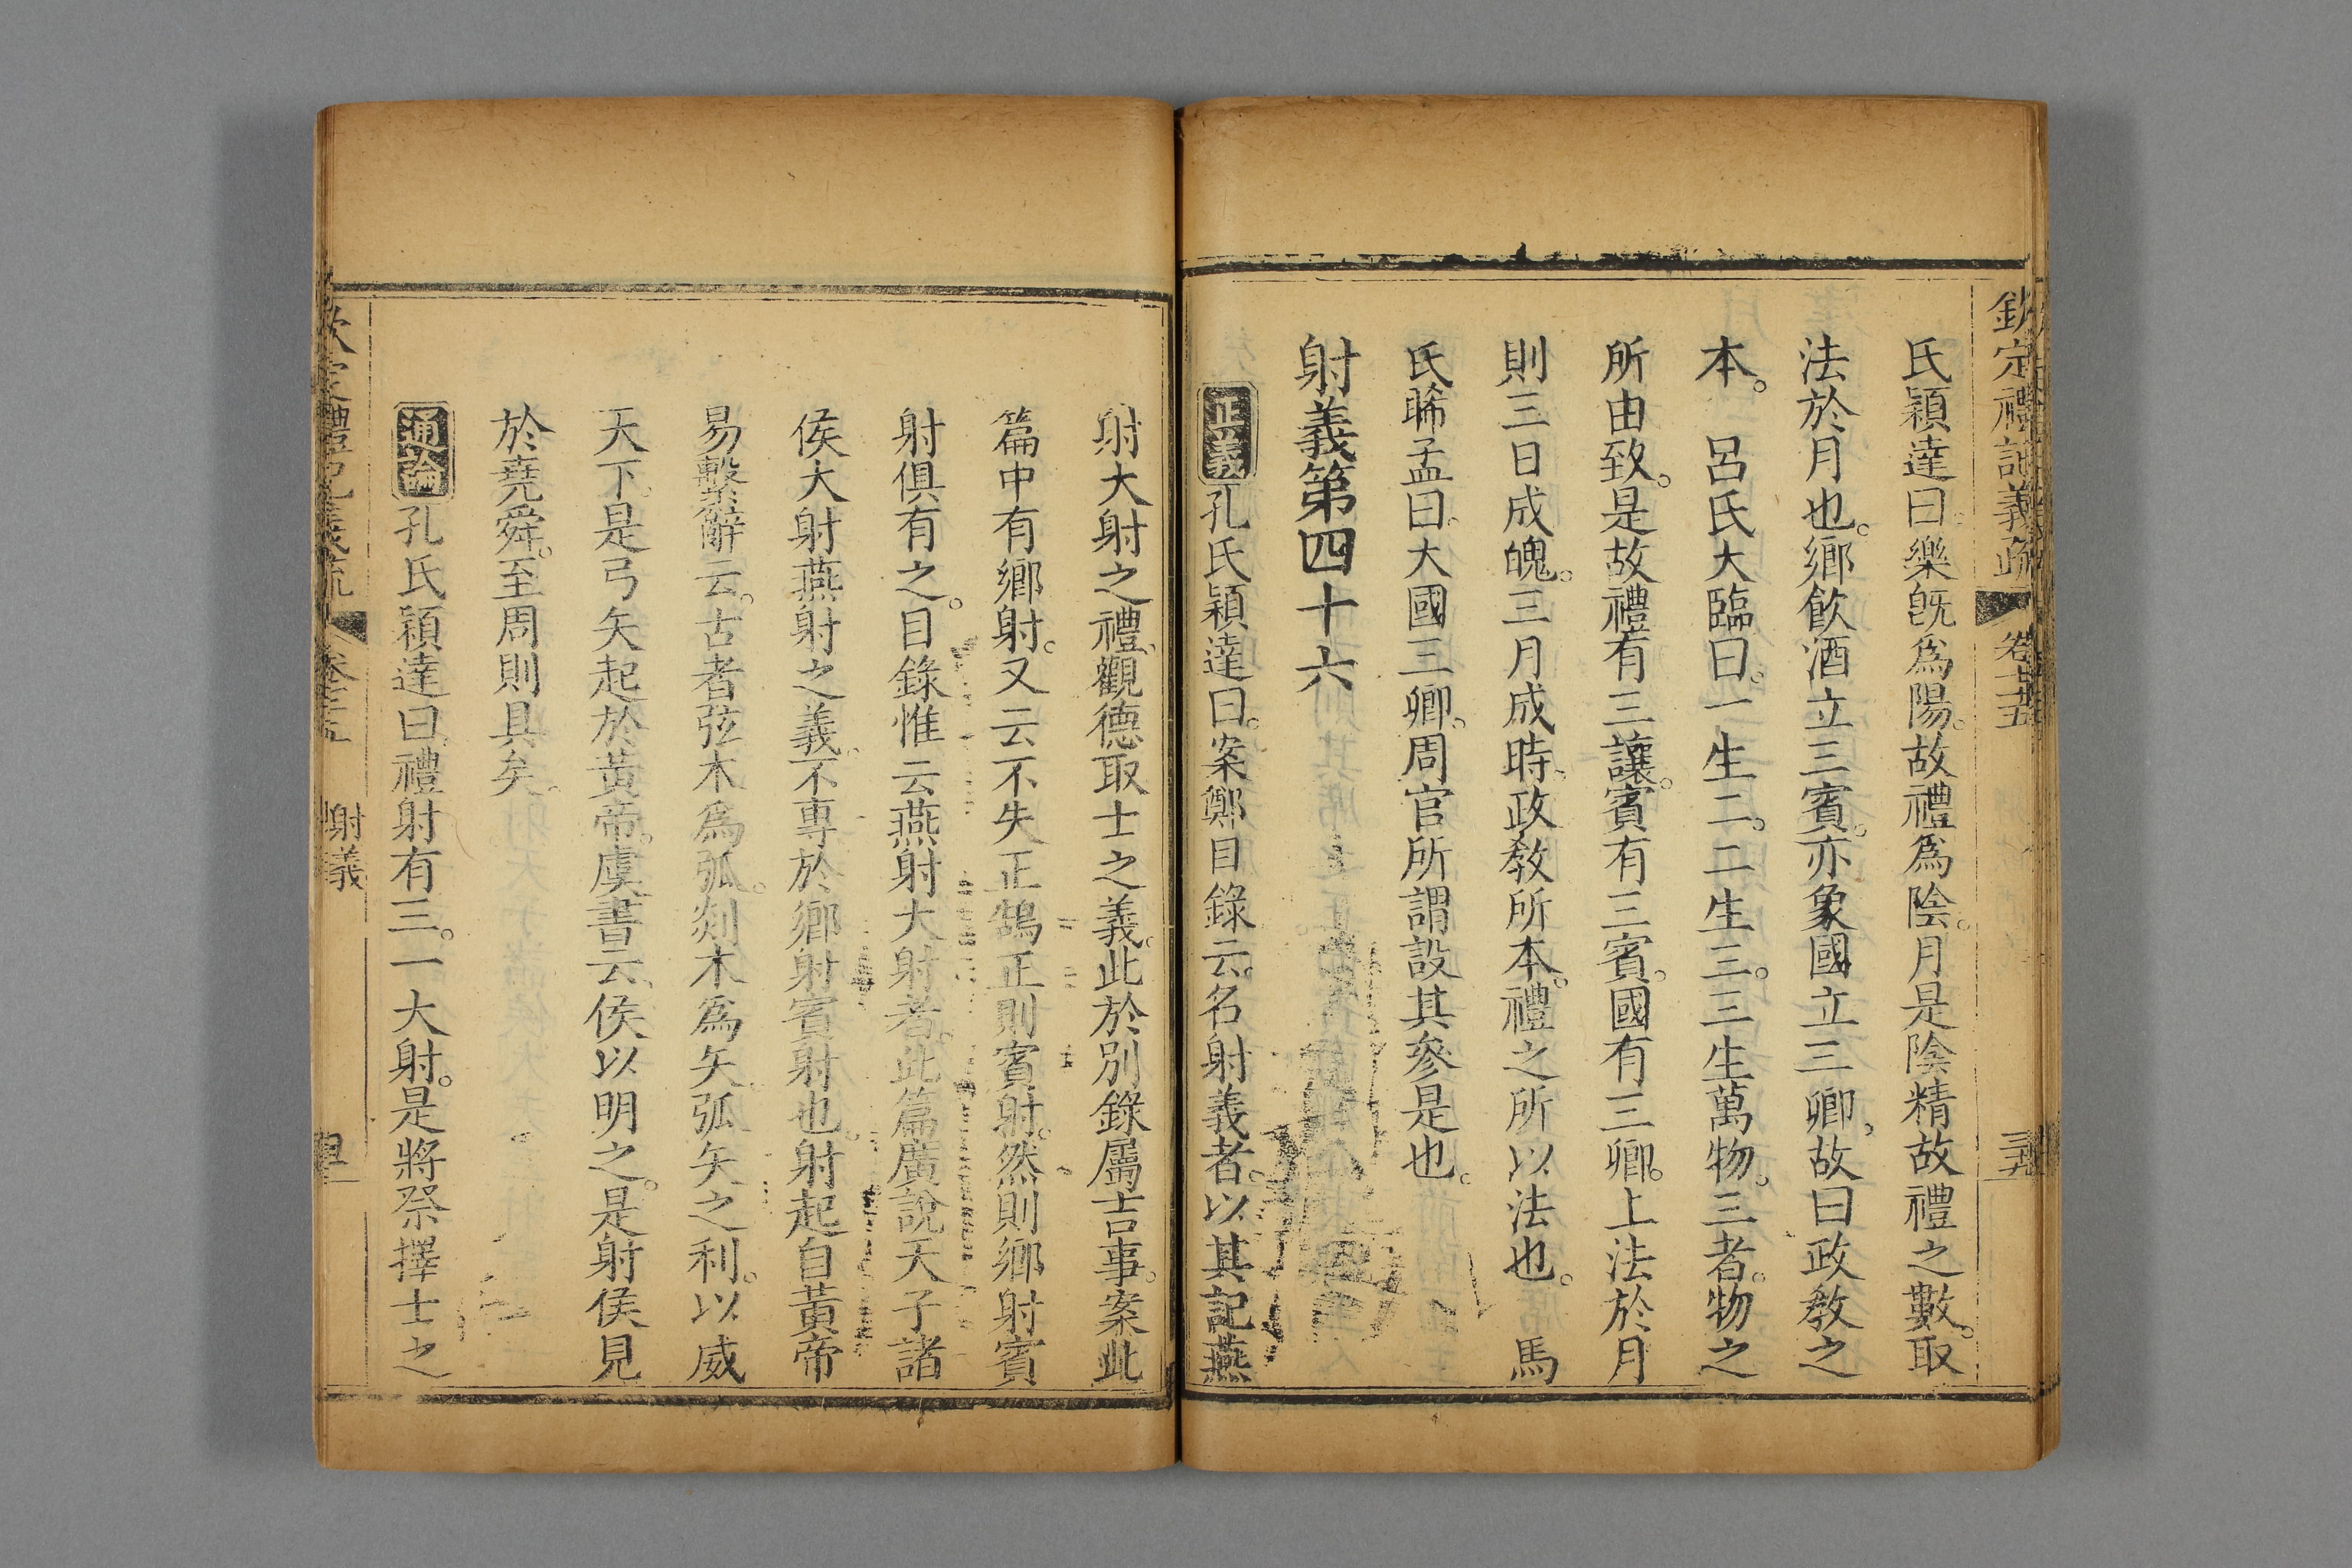 欽定禮記義疏 卷七十五
氏穎達曰樂旣爲陽。故禮爲陰。月是陰精故禮之數。取
法於月也。鄉飮酒立三賓。亦象國立三卿。故曰政敎之
本。 呂氏大臨曰。一生二。二生三。三生萬物。三者。物之
所由致。是故禮有三讓。賓有三賓。國有三卿。上法於月
則三日成魄。三月成時。政敎所本。禮之所以法也。 馬
氏晞孟曰。大國三卿。周官所謂設其參是也。
射義第四十六
正義孔氏穎達曰。案鄭目錄云。名射義者。以其記燕
射大射之禮。觀德取士之義。此於別錄屬吉事。案此
篇中有鄉射。又云不失正鵠正則賓射。然則鄉射賓
射俱有之。目錄惟云燕射大射者。此篇廣說天子諸
侯大射燕射之義。不專於鄉射賓射也。射起自黃帝
易繫辭云。古者弦木爲弧。剡木爲矢。弧矢之利。以威
天下。是弓矢起於黃帝。虞書云。侯以明之。是射侯見
於堯舜。至周則具矣。
通論孔氏穎達曰。禮射有三。一大射。是將祭擇士之
射義